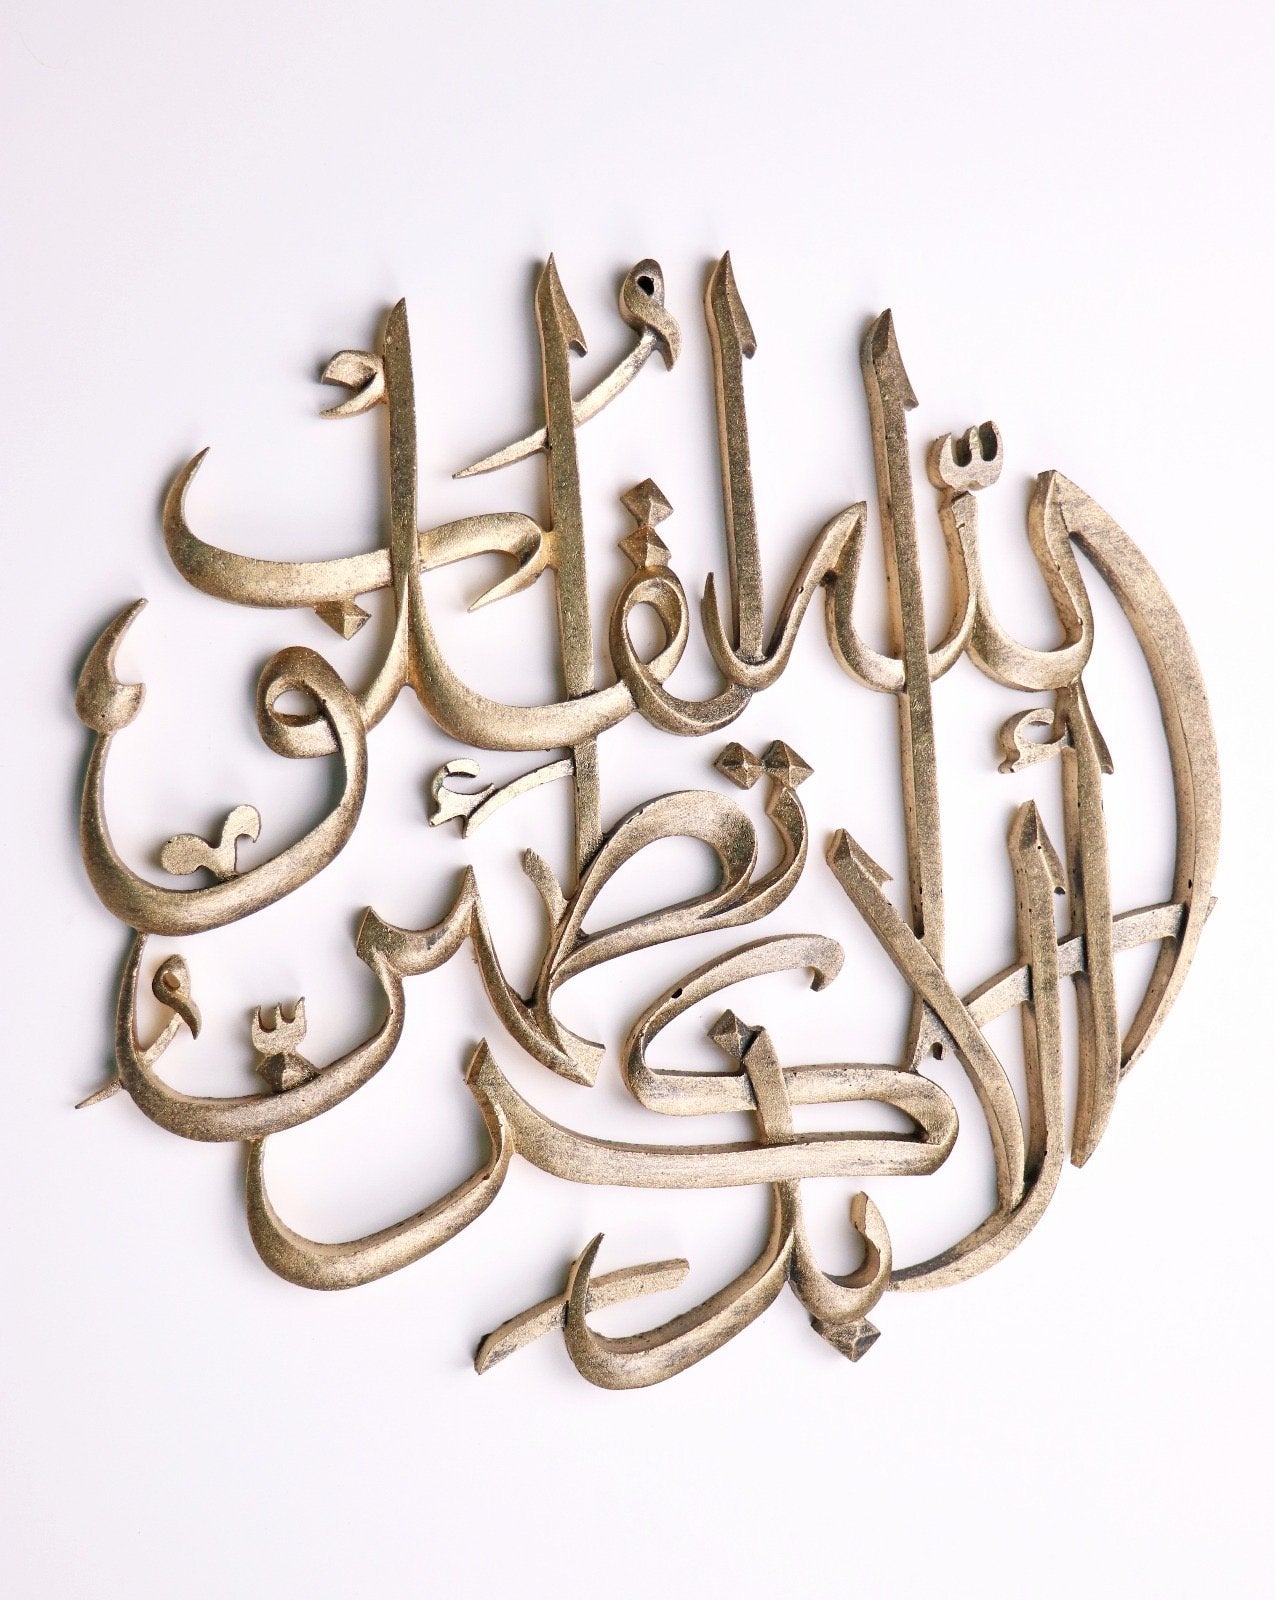 ألا بذكر
الله تطمئن
القلوب